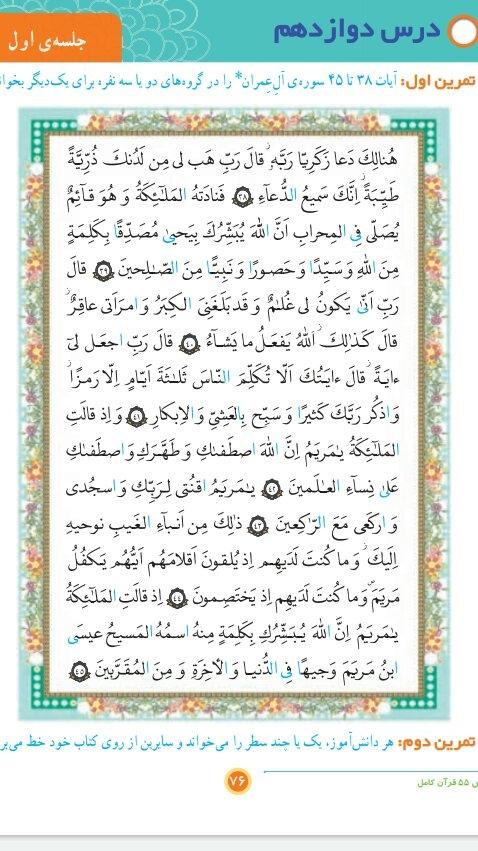 درس دوازدهم
جلسه‌ی اول
تمرین اول: آیات ۳۸ تا ۴۵ سوره‌ی آلِ‌عِمران* را در گروه‌های دو یا سه نفره برای یک‌دیگر بخوان
هُنالِكَ دَعا زَكَرِيّا رَبَّهٗ ۖ قالَ رَبِّ هَب لى مِن لَدُنكَ ذُرِّيَّةً
طَيِّبَةً ۖ اِنَّكَ سَميعُ الدُّعآءِ ۳۸ فَنادَتهُ المَلٰٓئِكَةُ وَ هُوَ قآئِمٌ
يُصَلّى فِى المِحرابِ اَنَّ اللّٰهَ يُبَشِّرُكَ بِيَحيىٰ مُصَدِّقًا بِكَلِمَةٍ
مِنَ اللّٰهِ وَ سَيِّدًا وَ حَصورًا وَ نَبِيًّا مِنَ الصّٰلِحينَ ۳۹ قالَ
رَبِّ اَنّىٰ يَكونُ لى غُلٰمٌ وَ قَد بَلَغَنِىَ الكِبَرُ وَ امرَاَتى عاقِرٌ ۖ
قالَ كَذٰلِكَ اللّٰهُ يَفعَلُ ما يَشآءُ ۴۰ قالَ رَبِّ اجعَل لى
ءايَةً ۖ قالَ ءايَتُكَ اَلّا تُكَلِّمَ النّاسَ ثَلٰثَةَ اَيّامٍ اِلّا رَمزًا ۗ
وَ اذكُر رَبَّكَ كَثيرًا وَ سَبِّح بِالعَشِىِّ وَ الاِبكارِ ۴۱ وَ اِذ قالَتِ
المَلٰٓئِكَةُ يٰمَريَمُ اِنَّ اللّٰهَ اصطَفٰىكِ وَ طَهَّرَكِ وَ اصطَفٰىكِ
عَلىٰ نِسآءِ العٰلَمينَ ۴۲ يٰمَريَمُ اقنُتى لِرَبِّكِ وَ اسجُدى
وَ اركَعى مَعَ الرّٰكِعينَ ۴۳ ذٰلِكَ مِن اَنبآءِ الغَيبِ نوحيهِ
اِلَيكَ ۚ وَ ما كُنتَ لَدَيهِم اِذ يُلقونَ اَقلامَهُم اَيُّهُم يَكفُلُ
مَريَمَ وَ ما كُنتَ لَدَيهِم اِذ يَختَصِمونَ ۴۴ اِذ قالَتِ المَلٰٓئِكَةُ
يٰمَريَمُ اِنَّ اللّٰهَ يُبَشِّرُكِ بِكَلِمَةٍ مِنهُ اسمُهُ المَسيحُ عيسَى
ابنُ مَريَمَ وَجيهًا فِى الدُّنيا وَ الاٰخِرَةِ وَ مِنَ المُقَرَّبينَ ۴۵
تمرین دوم: هر دانش‌آموز، یک یا چند سطر را می‌خواند و سایرین از روی کتاب خود خط می‌بر
۷۶
ص ۵۵ قرآن کامل